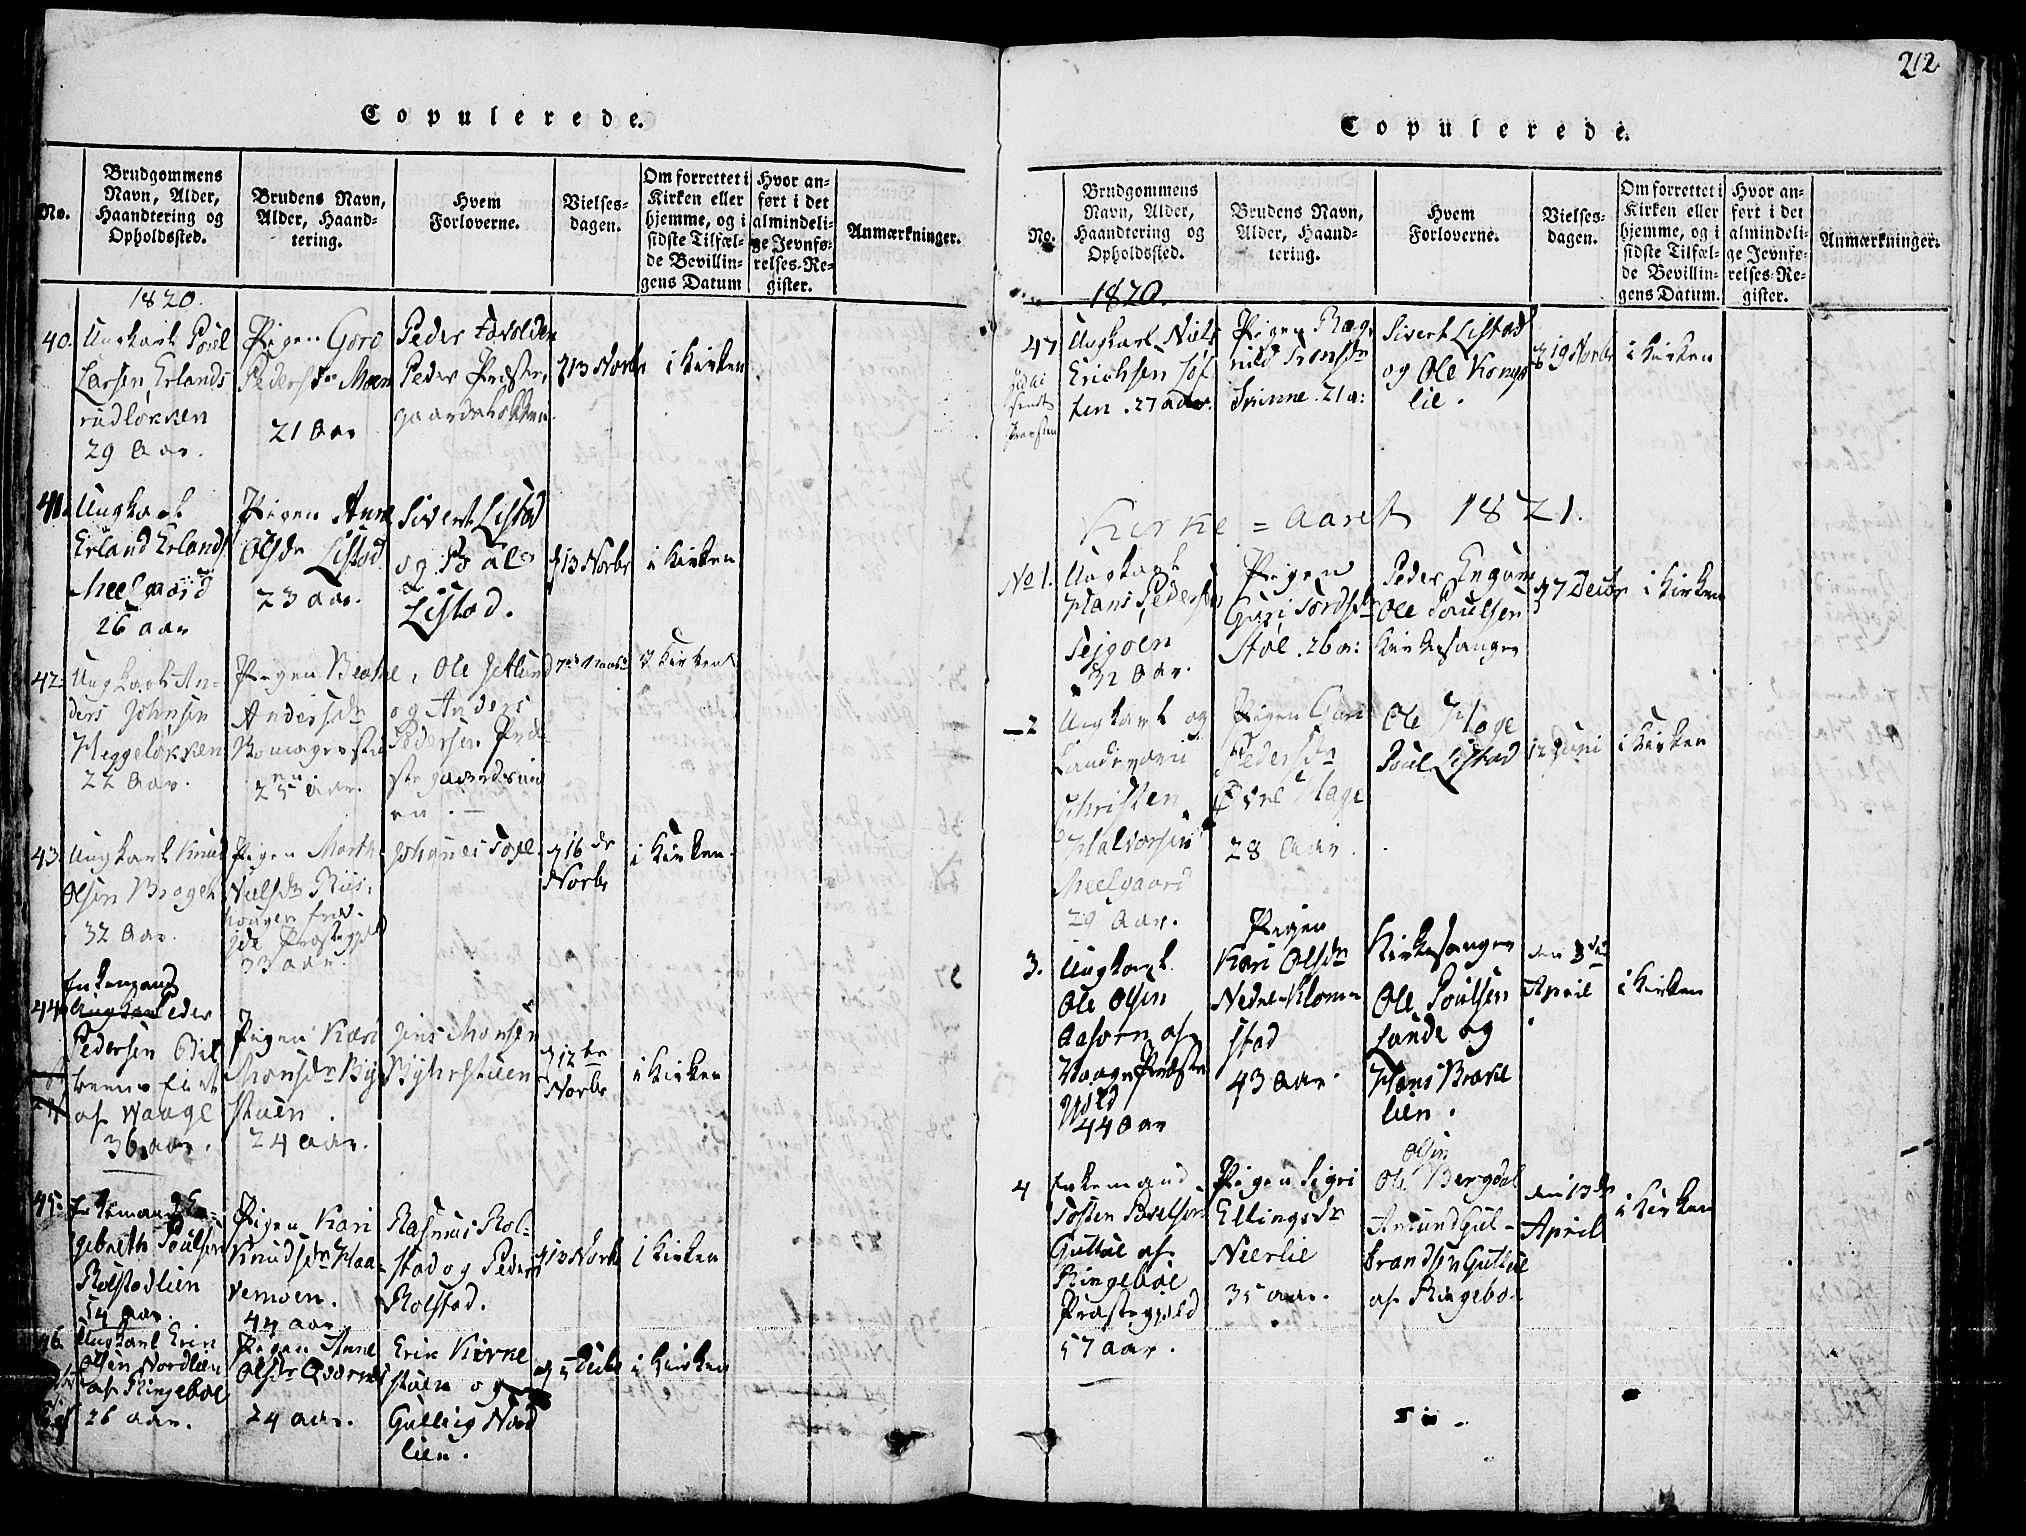 212
Copulerede.
No.
Brudgommens
Navn, Alder,
Haandtering og
Opholdssted.
Brudens Navn,
Alder, Haand-
tering.
Hvem
Forloverne.
Vielses-
dagen.
Om forrettet i
Kirken eller
hjemme, og i
sidste Tilfæl-
de Bevillin-
gens Datum
Hvor an-
ført i det
almindeli-
ge Jevnfø-
relses-Re-
gister.
Anmærkninger.
1820.
40.
Ungkarl Poul
Larsen Erlands
rudløkken
29 Aar.
Pigen Goro
Pedersdr Moen
21 Aar
Peder
Peder Præste
gaardsløkken
d 13 Novbr
i Kirken
41.
Ungkarl
Erland Erlands
Meelgaard
26 Aar
Pigen Anne
Olsdr Listad
23 Aar.
Sivert Listad
og Poul
Listad.
d 13 Novbr
i Kirken
42.
Ungkarl An-
ders Johnsen
Heggeløkken
22 Aar.
Pigen Beathe
Andersdr
25 Aar.
Ole Jetlund
og Anders
Pedersen Præ
stegaards
en.
i Kirken
43.
Ungkarl Knud
Olsen Brageli
32 Aar.
Pigen Marth
Nielsdr Riis
hougen fra
Præstegjeld
33 Aar.
Johannes Foxe
d 16de
Novbr
i Kirken
44.
Enkemand
Ungkarl Peder
Pedersen
af Vaage
36 Aar.
Pigen Kari
Monsdr By
stuen.
24 Aar.
Jens Monsen
Byhrstuen
d 12te
Novbr
i Kirken
45.
Enkemand En-
gebreth Poulsen
Rolstadlien
54 Aar.
Pigen Kari
Knudsdr Haa-
vemoen.
44 Aar
Rasmus Rol-
stad og Peder
Rolstad.
d 13 Novbr
i Kirken
46.
Ungkarl Erik
Olsen Nordlien
af Ringeboe
26 Aar.
Pigen Anne
Olsdr Qværnes
24 Aar.
Erik Kirke
stuen og
Gulbrig Nord
lien.
d 5 Decbr
i Kirken
Copulerede.
No.
Brudgommens
Navn, Alder,
Haandtering og
Opholdssted.
Brudens Navn,
Alder, Haand-
tering.
Hvem
Forloverne.
Vielses-
dagen.
Om forrettet i
Kirken eller
hjemme, og i
sidste Tilfæl-
de Bevillin-
gens Datum.
Hvor an-
ført i det
almindeli-
ge Jevnfø-
relses-Re-
gister.
Anmærkninger.
1820.
47
Ungkarl Niels
Erichsen Lof
ten. 27 Aar.
Pigen Rag
nild Tronsdr
Svinne. 21 a:
Sivert Listad
og Ole Kongs
lie.
d 19 Novbr
i Kirken
Kirke=Aaret 1821.
No 1.
Ungkarl
Hans Pedersen
Tejgoen
32 Aar.
Pigen
Guri Tordsdr
Stoe. 26 a:
Peder Engum
Ole Poulsen
Kirkesanger
d 7 Decbr
i Kirken
2
Ungkarl og
Landeværn
Christen
Halvorsen
Meelgaard
29 Aar.
Pigen Guri
Pedersdr
Øvre Hage
28 Aar.
Ole Hage
Poul Listad
12 Juni
i Kirken
3.
Ungkarl
Ole Olsen
Aasorn af
Vaage Præste
gjeld
44 Aar
Pigen
Kari Olsdr
Nedre Klom
stad
43 Aar
Kirkesanger
Ole Poulsen
Lunde og
Hans Brække
lien.
den 8de
April
i Kirken
4
Enkemand
Tosten Povelsen
Guttue af
Ringeboe
Præstegjeld
57 Aar.
Pigen Sigri
Ellingsdr
Neerlie
35 Aar.
Olsen
Ole Bergdal
Amund Gul-
brandsen Guttue
af Ringeboe
den 13de
April
i Kirken